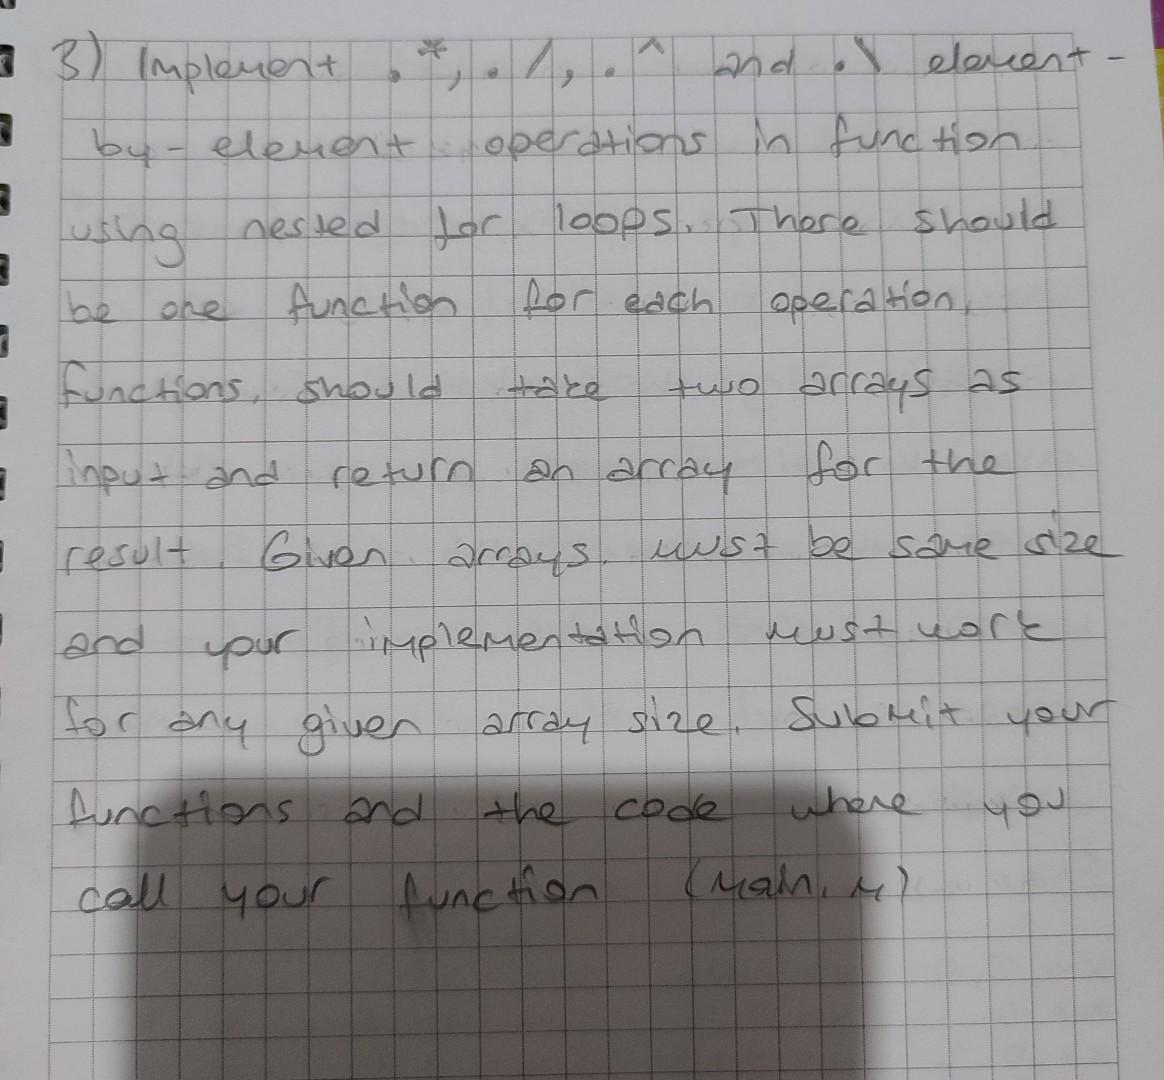 3) Implement .*, ./, .^ and .\ element-
by-element operations in function
using nested for loops. There should
be one function for each operation,
functions, should take two arrays as
input and return an array for the
result. Given arrays must be same size
and your implementation must work
for any given array size. Submit your
functions and the code where you
call your function (main.m)